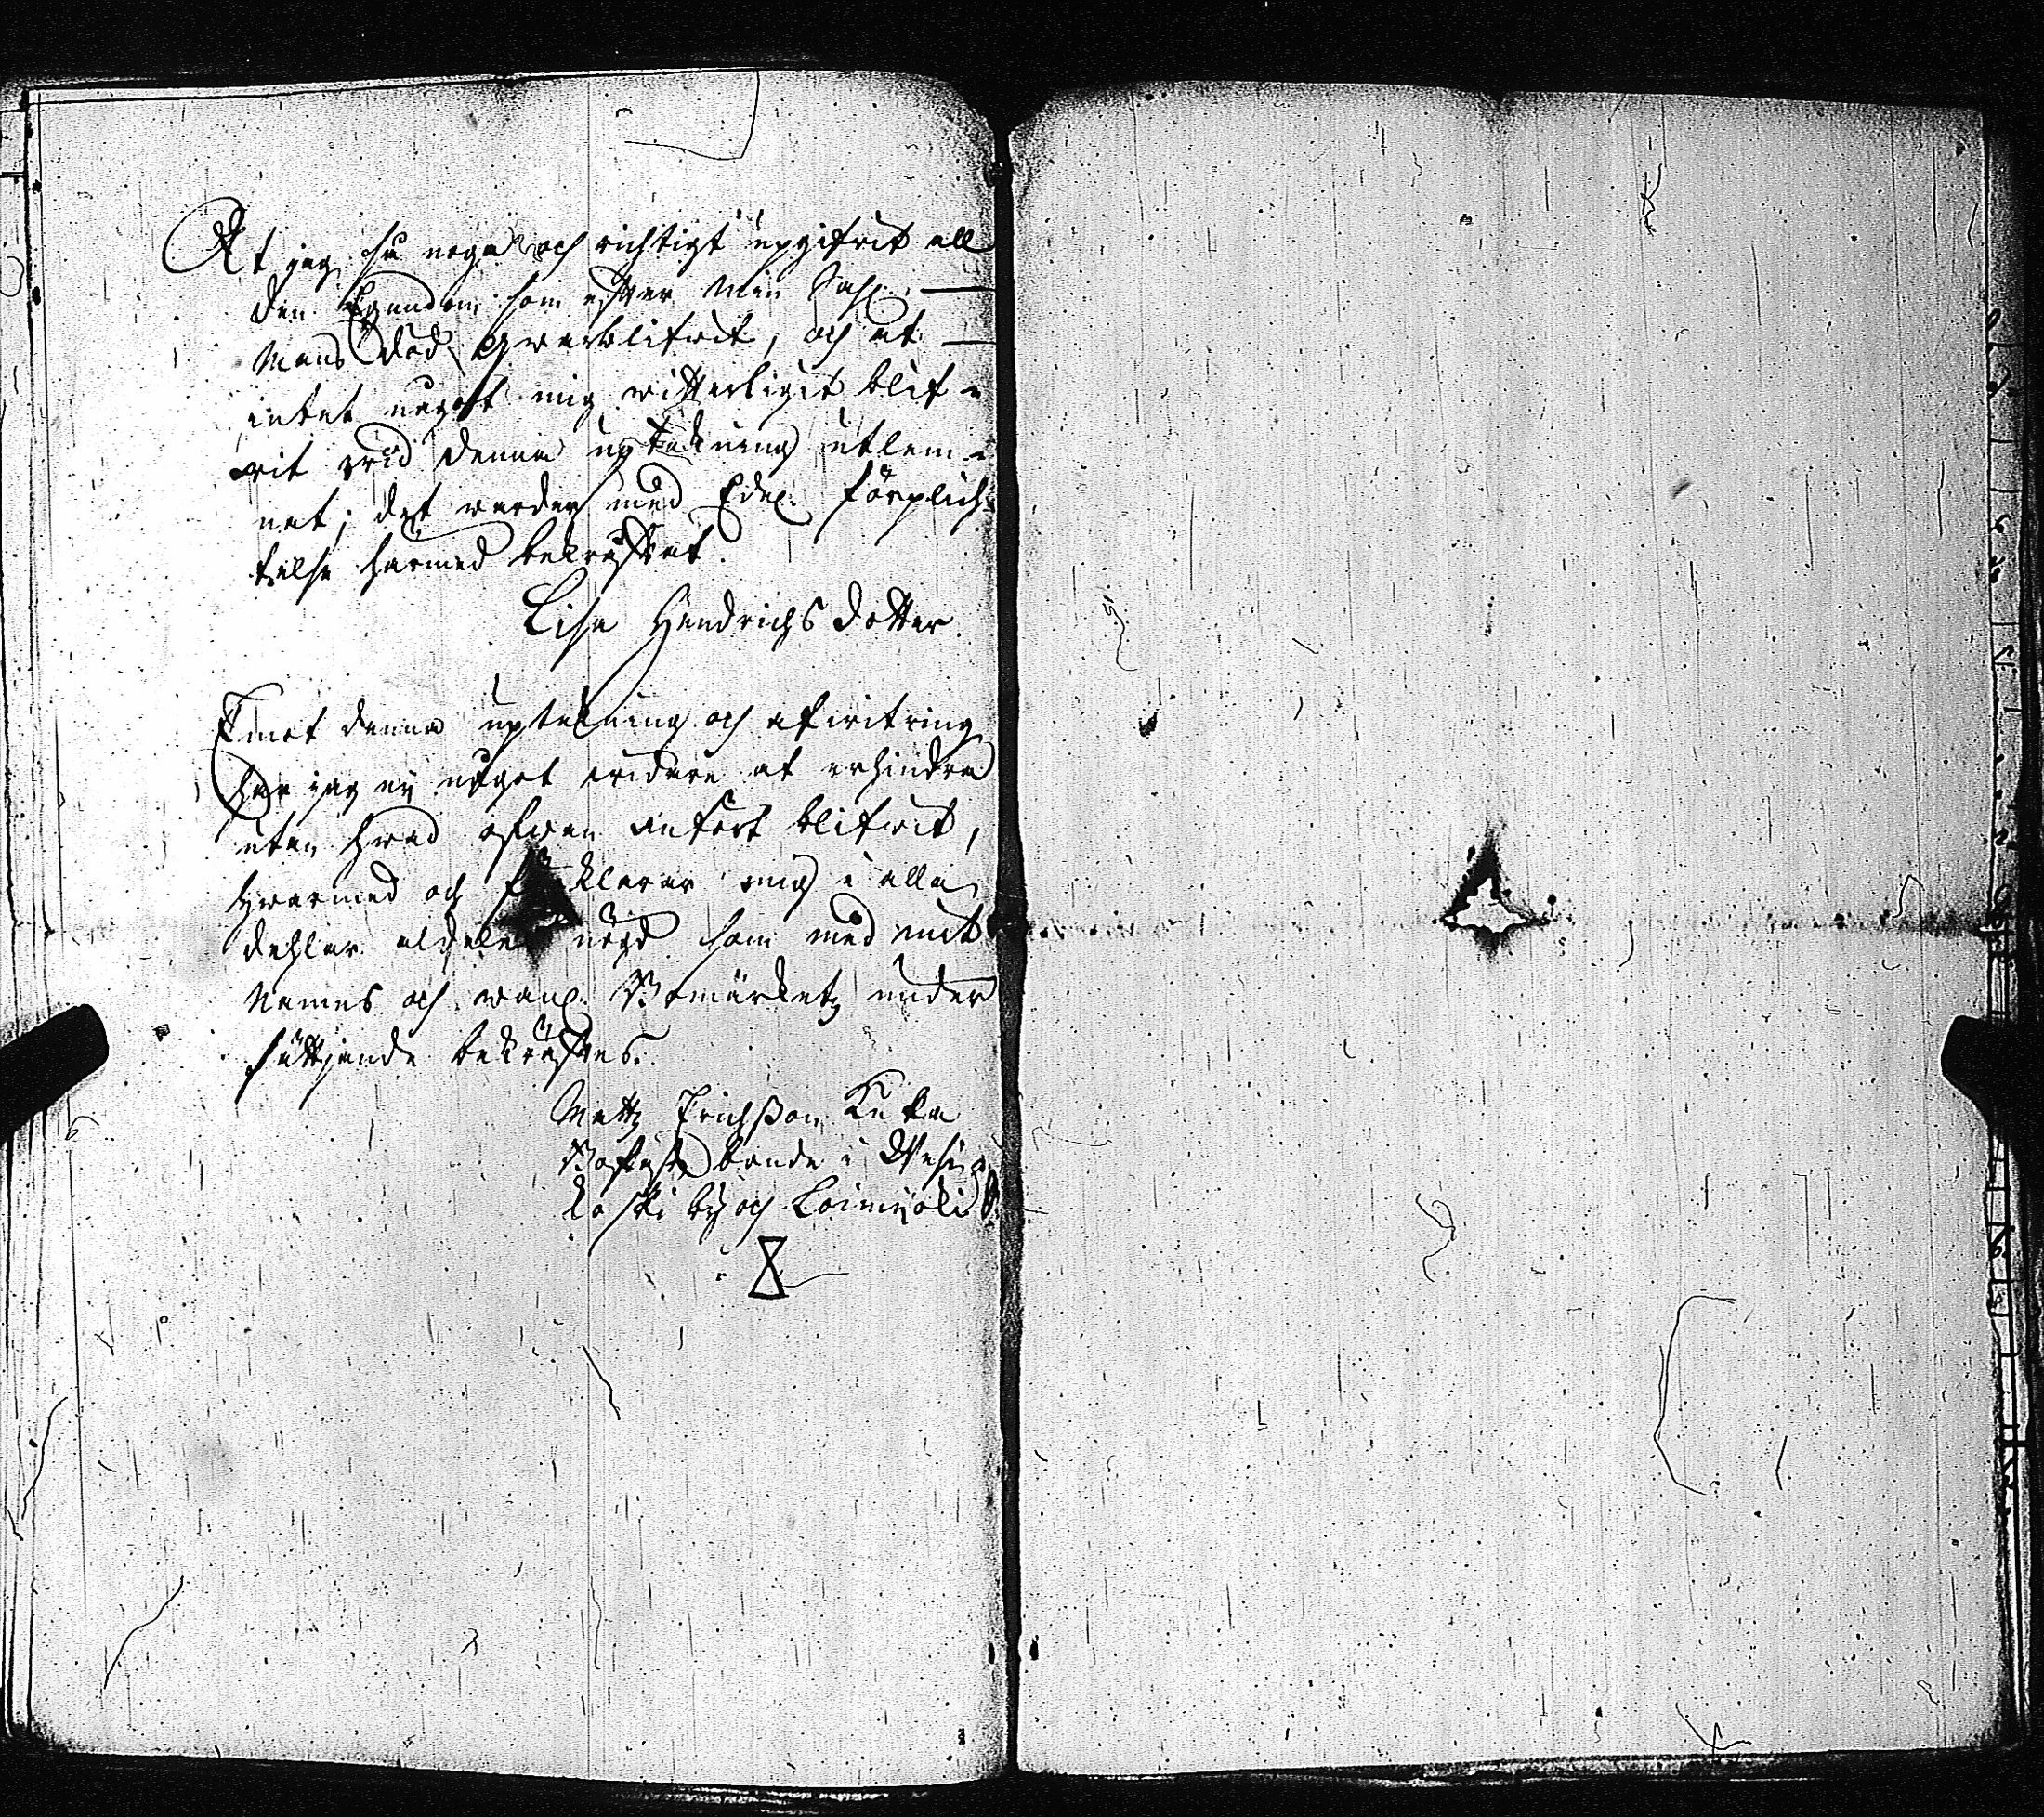 At jag så noga och richtigt upgifvit all
den Egendom som efter min Sahl.
Mans Död qwarblifvit, och at
intet någott mig witterligit blif-
vit wid denna uptekning utlem-
nat; det warder med Edel. förplich-
telse härmed bekräftat.
Lisa Hendrichs dotter
Emot denna uptekning och afwitring
har jag ej något widare at erhindra
utan hwad ofwan infört blifwit,
hwarmed och förklarar mig i alla
dehlar aldeles nögd som med mit
Namns och wanl. Bomärketz under
sättjande bekräftes.
Matz Erichsson Kuka
bonde i
koski by och Loimijoki S.